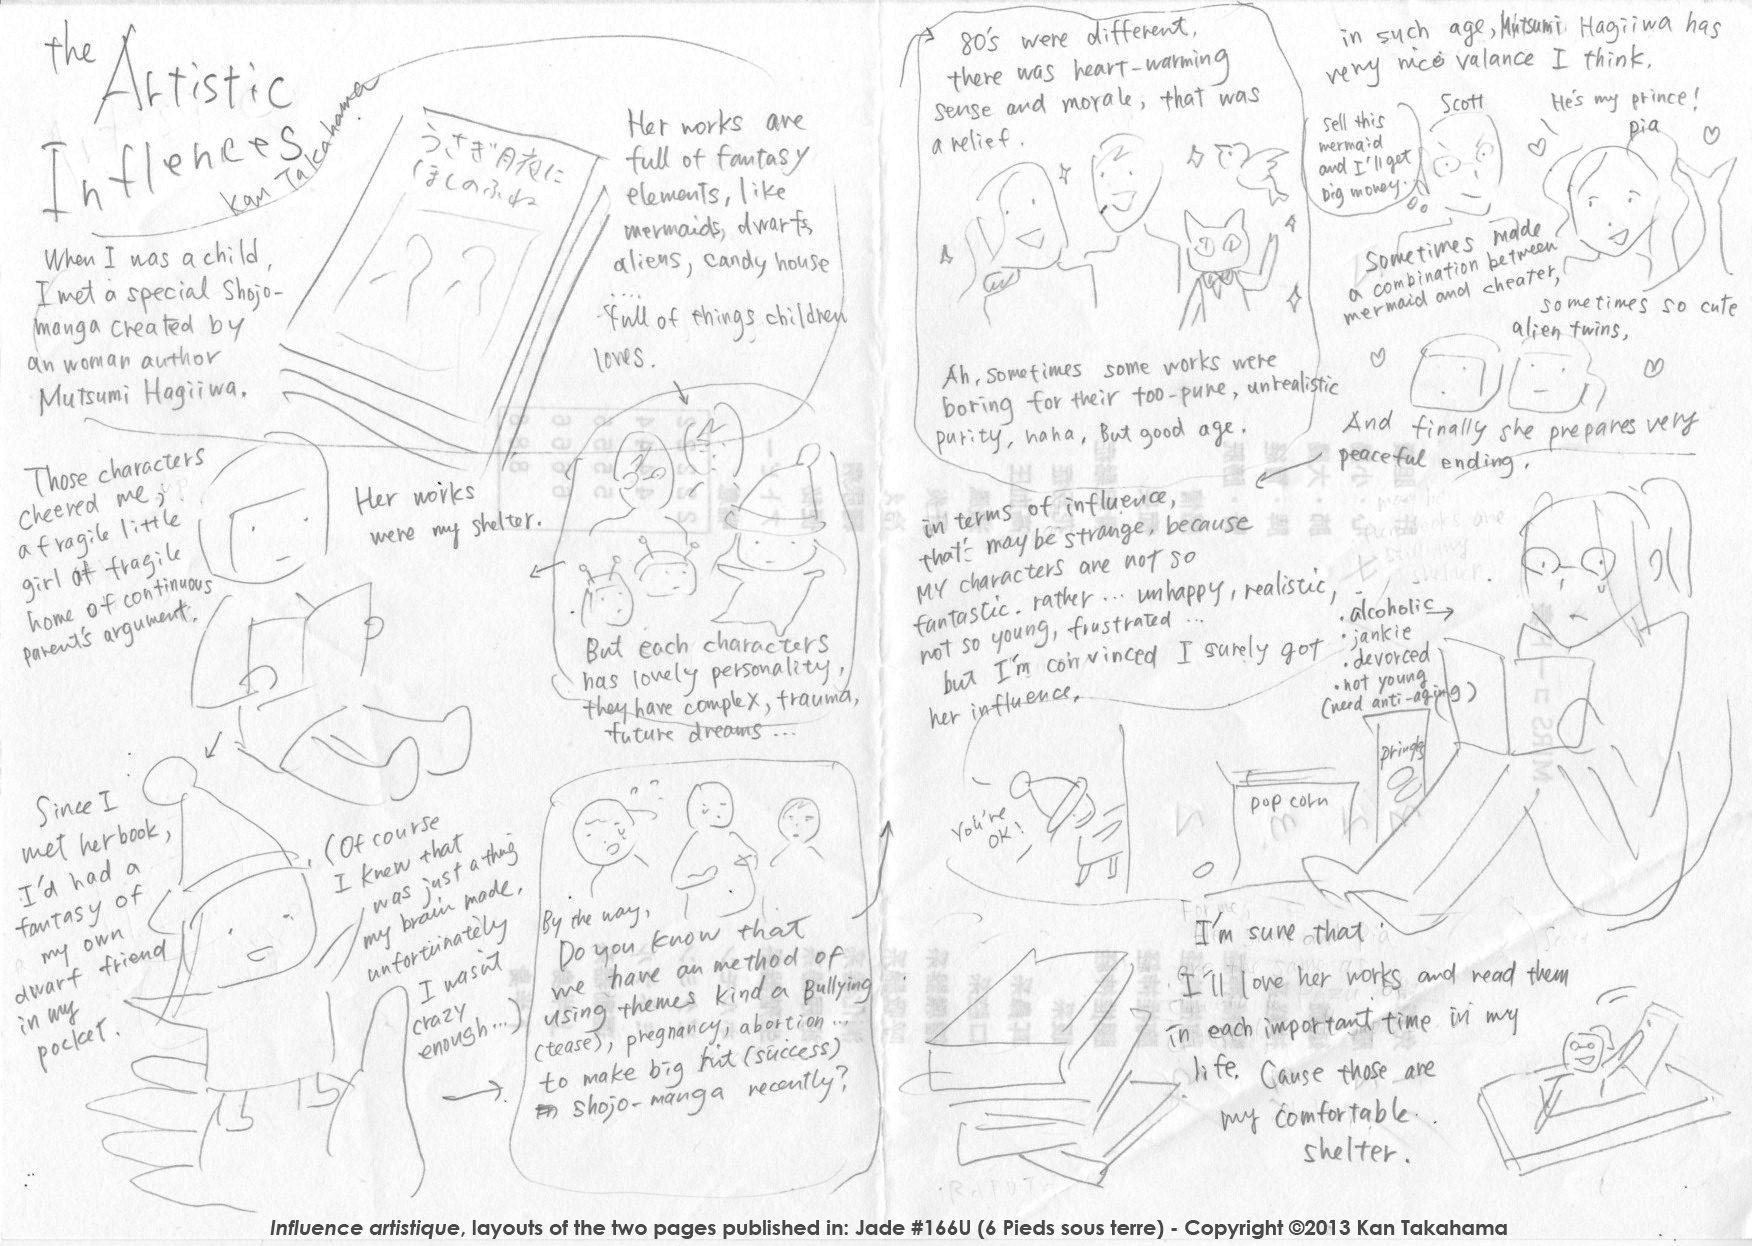 the
Artistic
Inflences
Kan Takahama
When I was a child,
I met a special Shojo-
manga created by
an woman author
Mutsumi Hagiiwa.
うさぎ月夜に
ほしのふね
Her works are
full of fantasy
elements, like
mermaids, dwarfs,
aliens, candy house
....
full of things children
loves.
But each characters
has lovely personality,
they have complex, trauma,
future dreams...
Her works
were my shelter.
Those characters
cheered me,
a fragile little
girl at fragile
home of continuous
parent's argument.
Since I
met her book,
I'd had a
fantasy of
my own
dwarf friend
in my
pocket.
(Of course
I knew that
was just a thing
my brain made,
unfortunately
I wasn't
crazy
enough...)
By the way,
Do you know that
we have an method of
using themes kind a Bullying
(tease), pregnancy, abortion...
to make big hit (success)
shojo-manga recently?
80's were different,
there was heart-warming
sense and morale, that was
a relief.
Ah, sometimes some works were
boring for their too-pure, unrealistic
purity, haha, But good age.
in such age, Mutsumi Hagiiwa has
very nice valance I think.
Sell this
mermaid
and I'll get
big money.
Scott
He's my prince!
pia
Sometimes made
a combination between
mermaid and cheater,
sometimes so cute
alien twins,
And finally she prepares very
peaceful ending.
in terms of influence,
that's maybe strange, because
my characters are not so
fantastic. rather... unhappy, realistic,
not so young, frustrated...
but I'm convinced I surely got
her influence.
・alcoholic
・jankie
・devorced
・not young
(need anti-aging)
You're
OK!
pop corn
pringles
I'm sure that
I'll love her works and read them
in each important time in my
life. Cause those are
my comfortable
shelter.
Influence artistique, layouts of the two pages published in: Jade #166U (6 Pieds sous terre) - Copyright ©2013 Kan Takahama